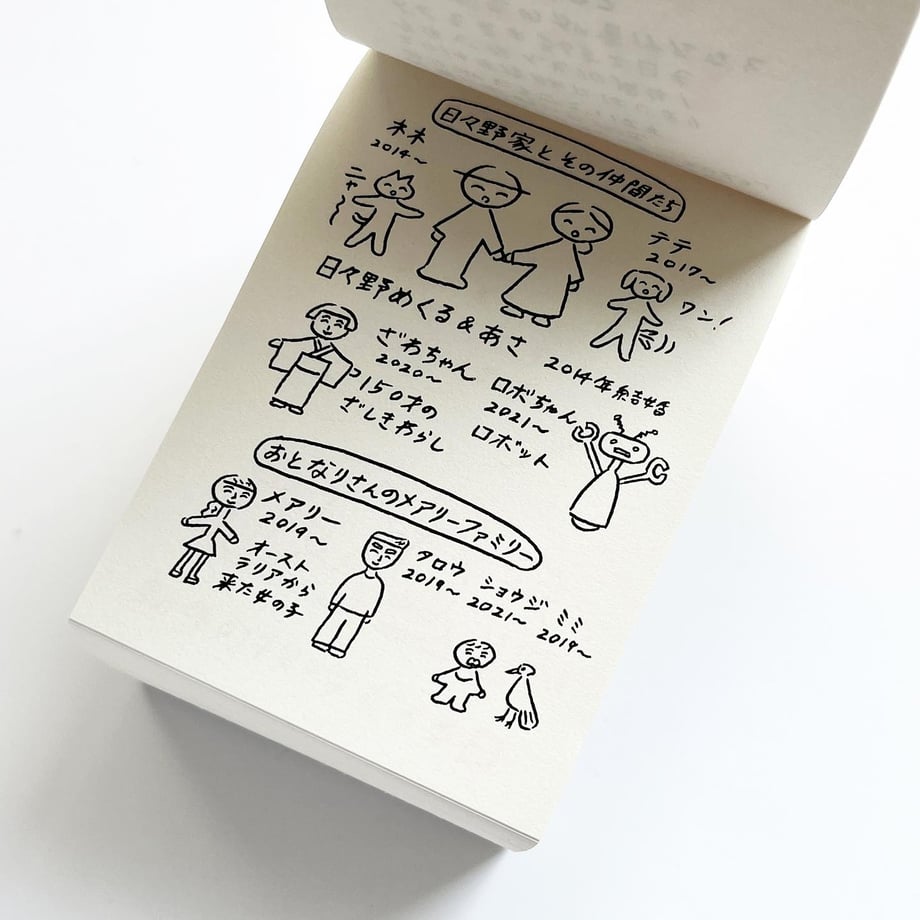 日々野家とその仲間たち
木木
2014〜
ニャ〜
テテ
2017〜
ワン!
日々野めくる&あさ
2014年結婚
ざわちゃん
2020〜
150才の
ざしきわらし
ロボちゃん
2021〜
ロボット
おとなりさんのメアリーファミリー
メアリー
2019〜
オースト
ラリアから
来た女の子
タロウ
2019〜
ショウジ
2021〜
ミミ
2019〜